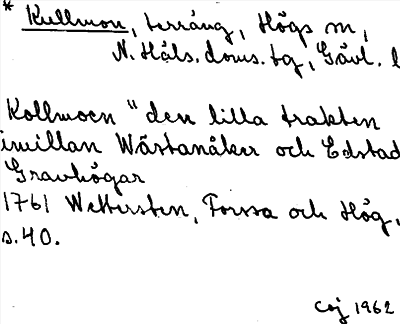 * Kullmon, terräng, Högs sn,
N. Häls. doms. tg, Gävl. l
Kollmoen "den lilla trakten
imillan Wästanåker och Edstad
Gravhögar
1761 Wettersten, Forssa och Hög,
s. 40.
Coj 1962